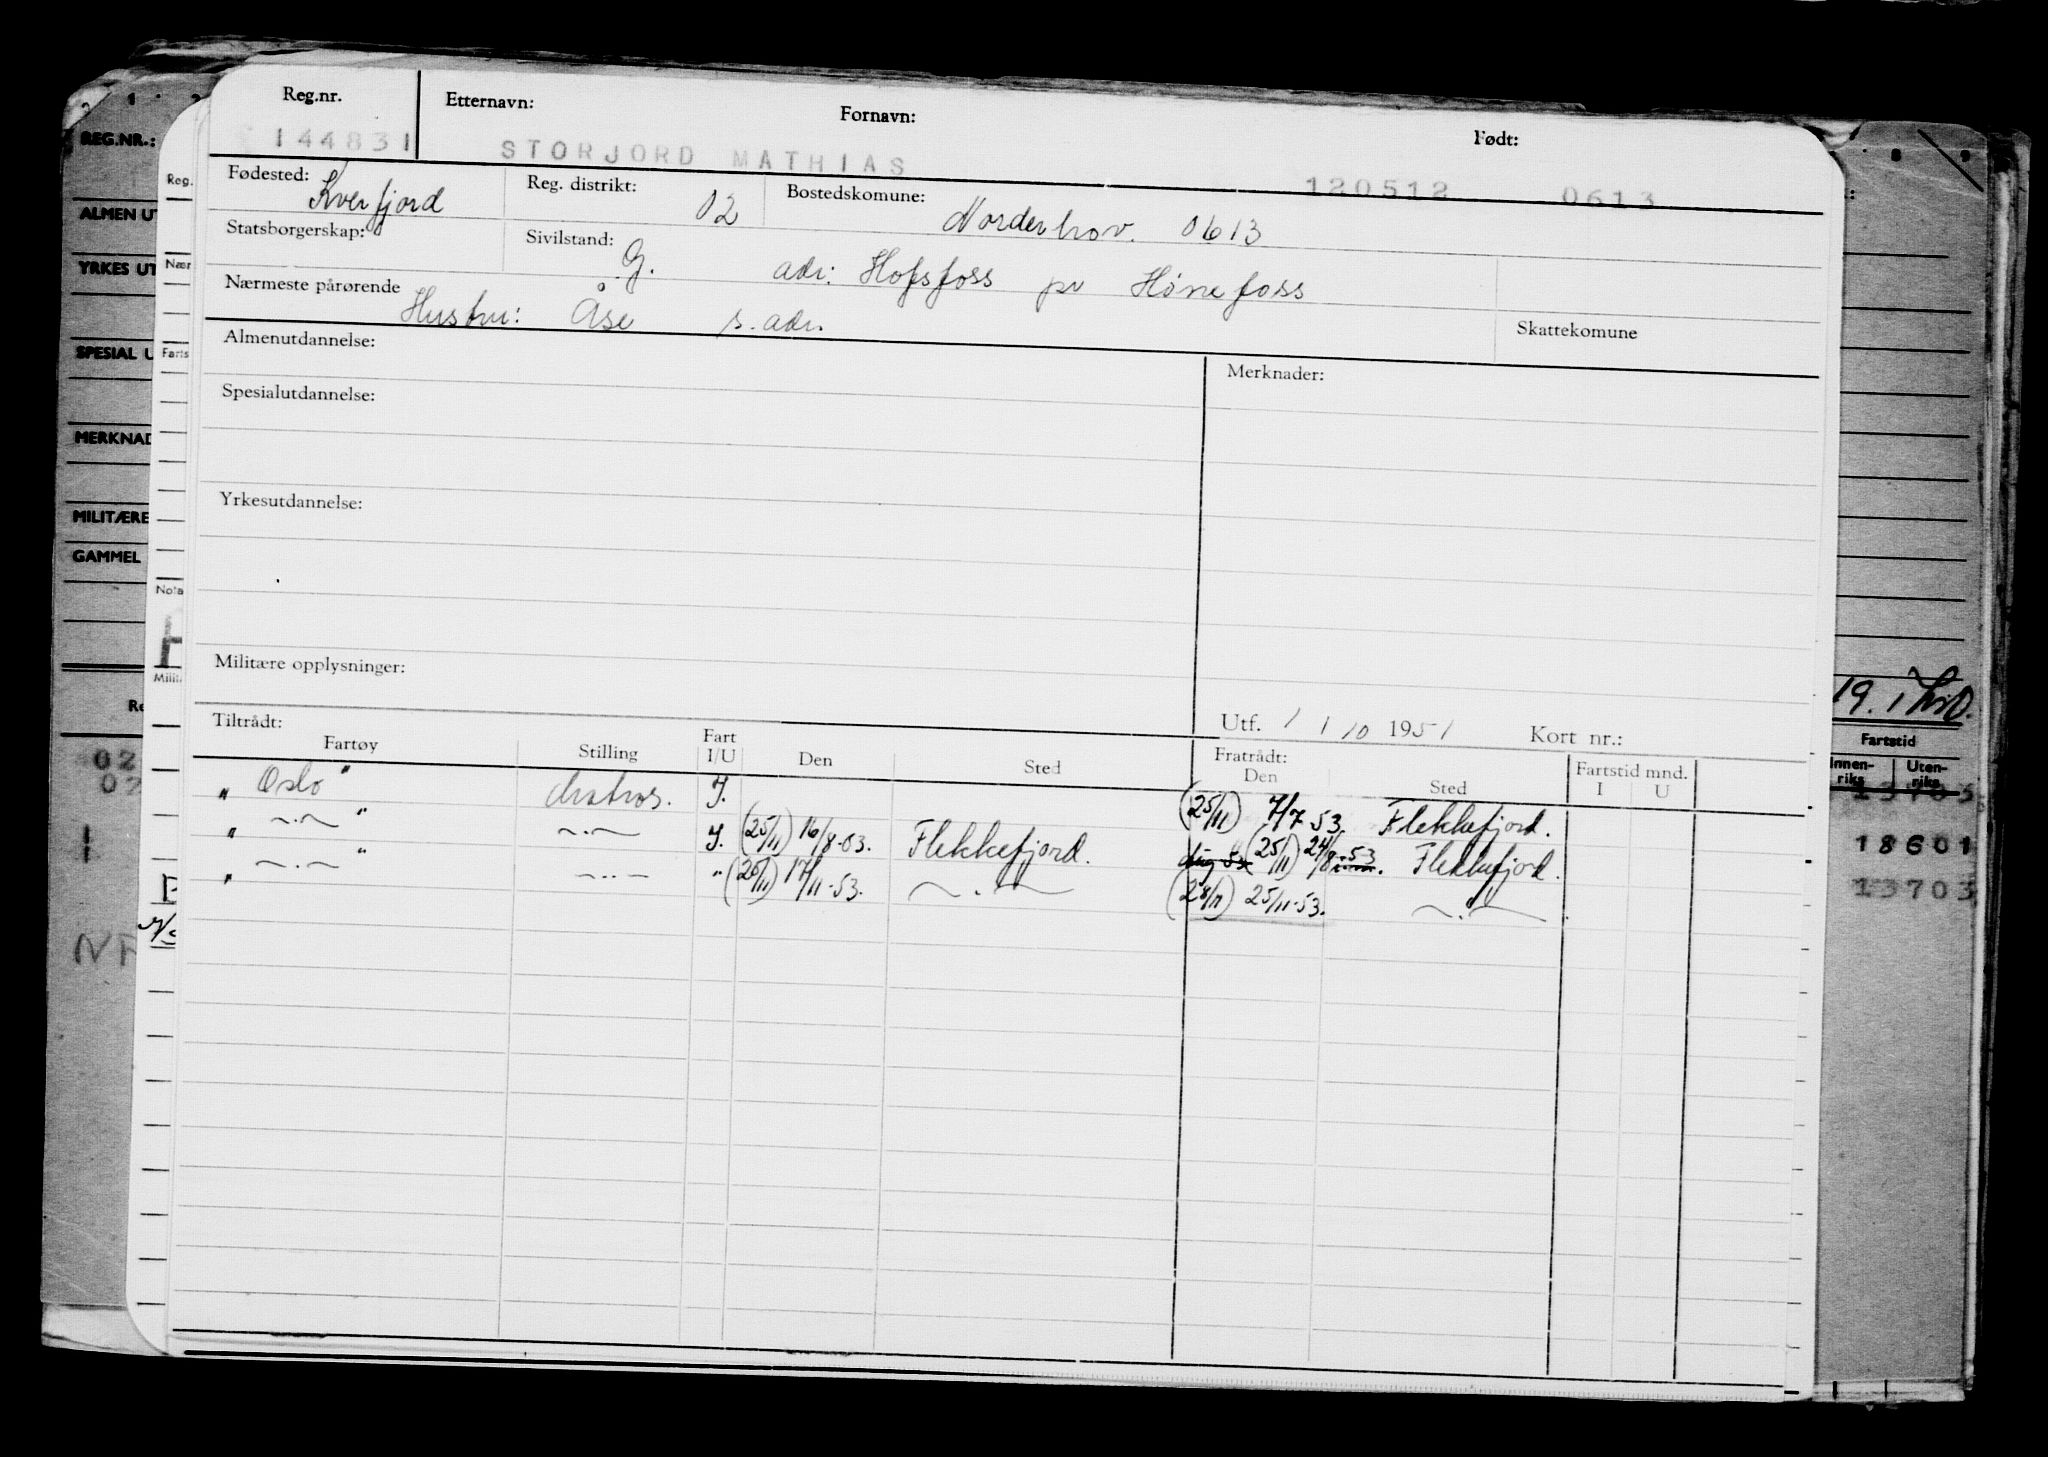 Reg.nr. Etternavn: Fornavn: Født:
144831 STORJORD MATHIAS 120512 0613
Fødested: Kverfjord Reg. distrikt: 02 Bostedskomune: Norderhov. 0613
Statsborgerskap: Sivilstand: G. adr: Hofsfoss pr Hønefoss
Nærmeste pårørende Hustru: Åse s. adr. Skattekomune
Almenutdannelse: Merknader:
Spesialutdannelse:
Yrkesutdannelse:
Militære opplysninger:
Tiltrådt: Utf. 1 / 10 1951 Kort nr.:
Fartøy Stilling Fart I/U Den Sted Fratrådt: Den Sted Fartstid mnd. I U
„ Oslo " Matros. I. (25/11) 7/7 53. Flekkefjord.
„ —.— " —.— I. (25/11) 16/8-53. Flekkefjord. aug 53 (25/11) 24/8-53. Flekkefjord.
„ —.— " —..— " (28/11) 17/11-53. —.— (28/11) 25/11-53. —.—
REG.NR.:
ALMEN UT
YRKES UT
SPESIAL U
MERKNAD
MILITÆRE
GAMMEL
Reg.
Nær
Farts
Nota
Milit
02
02
NF
8 9
19.
Fartstid
Innen-riks Uten-riks
13703
18601
13703